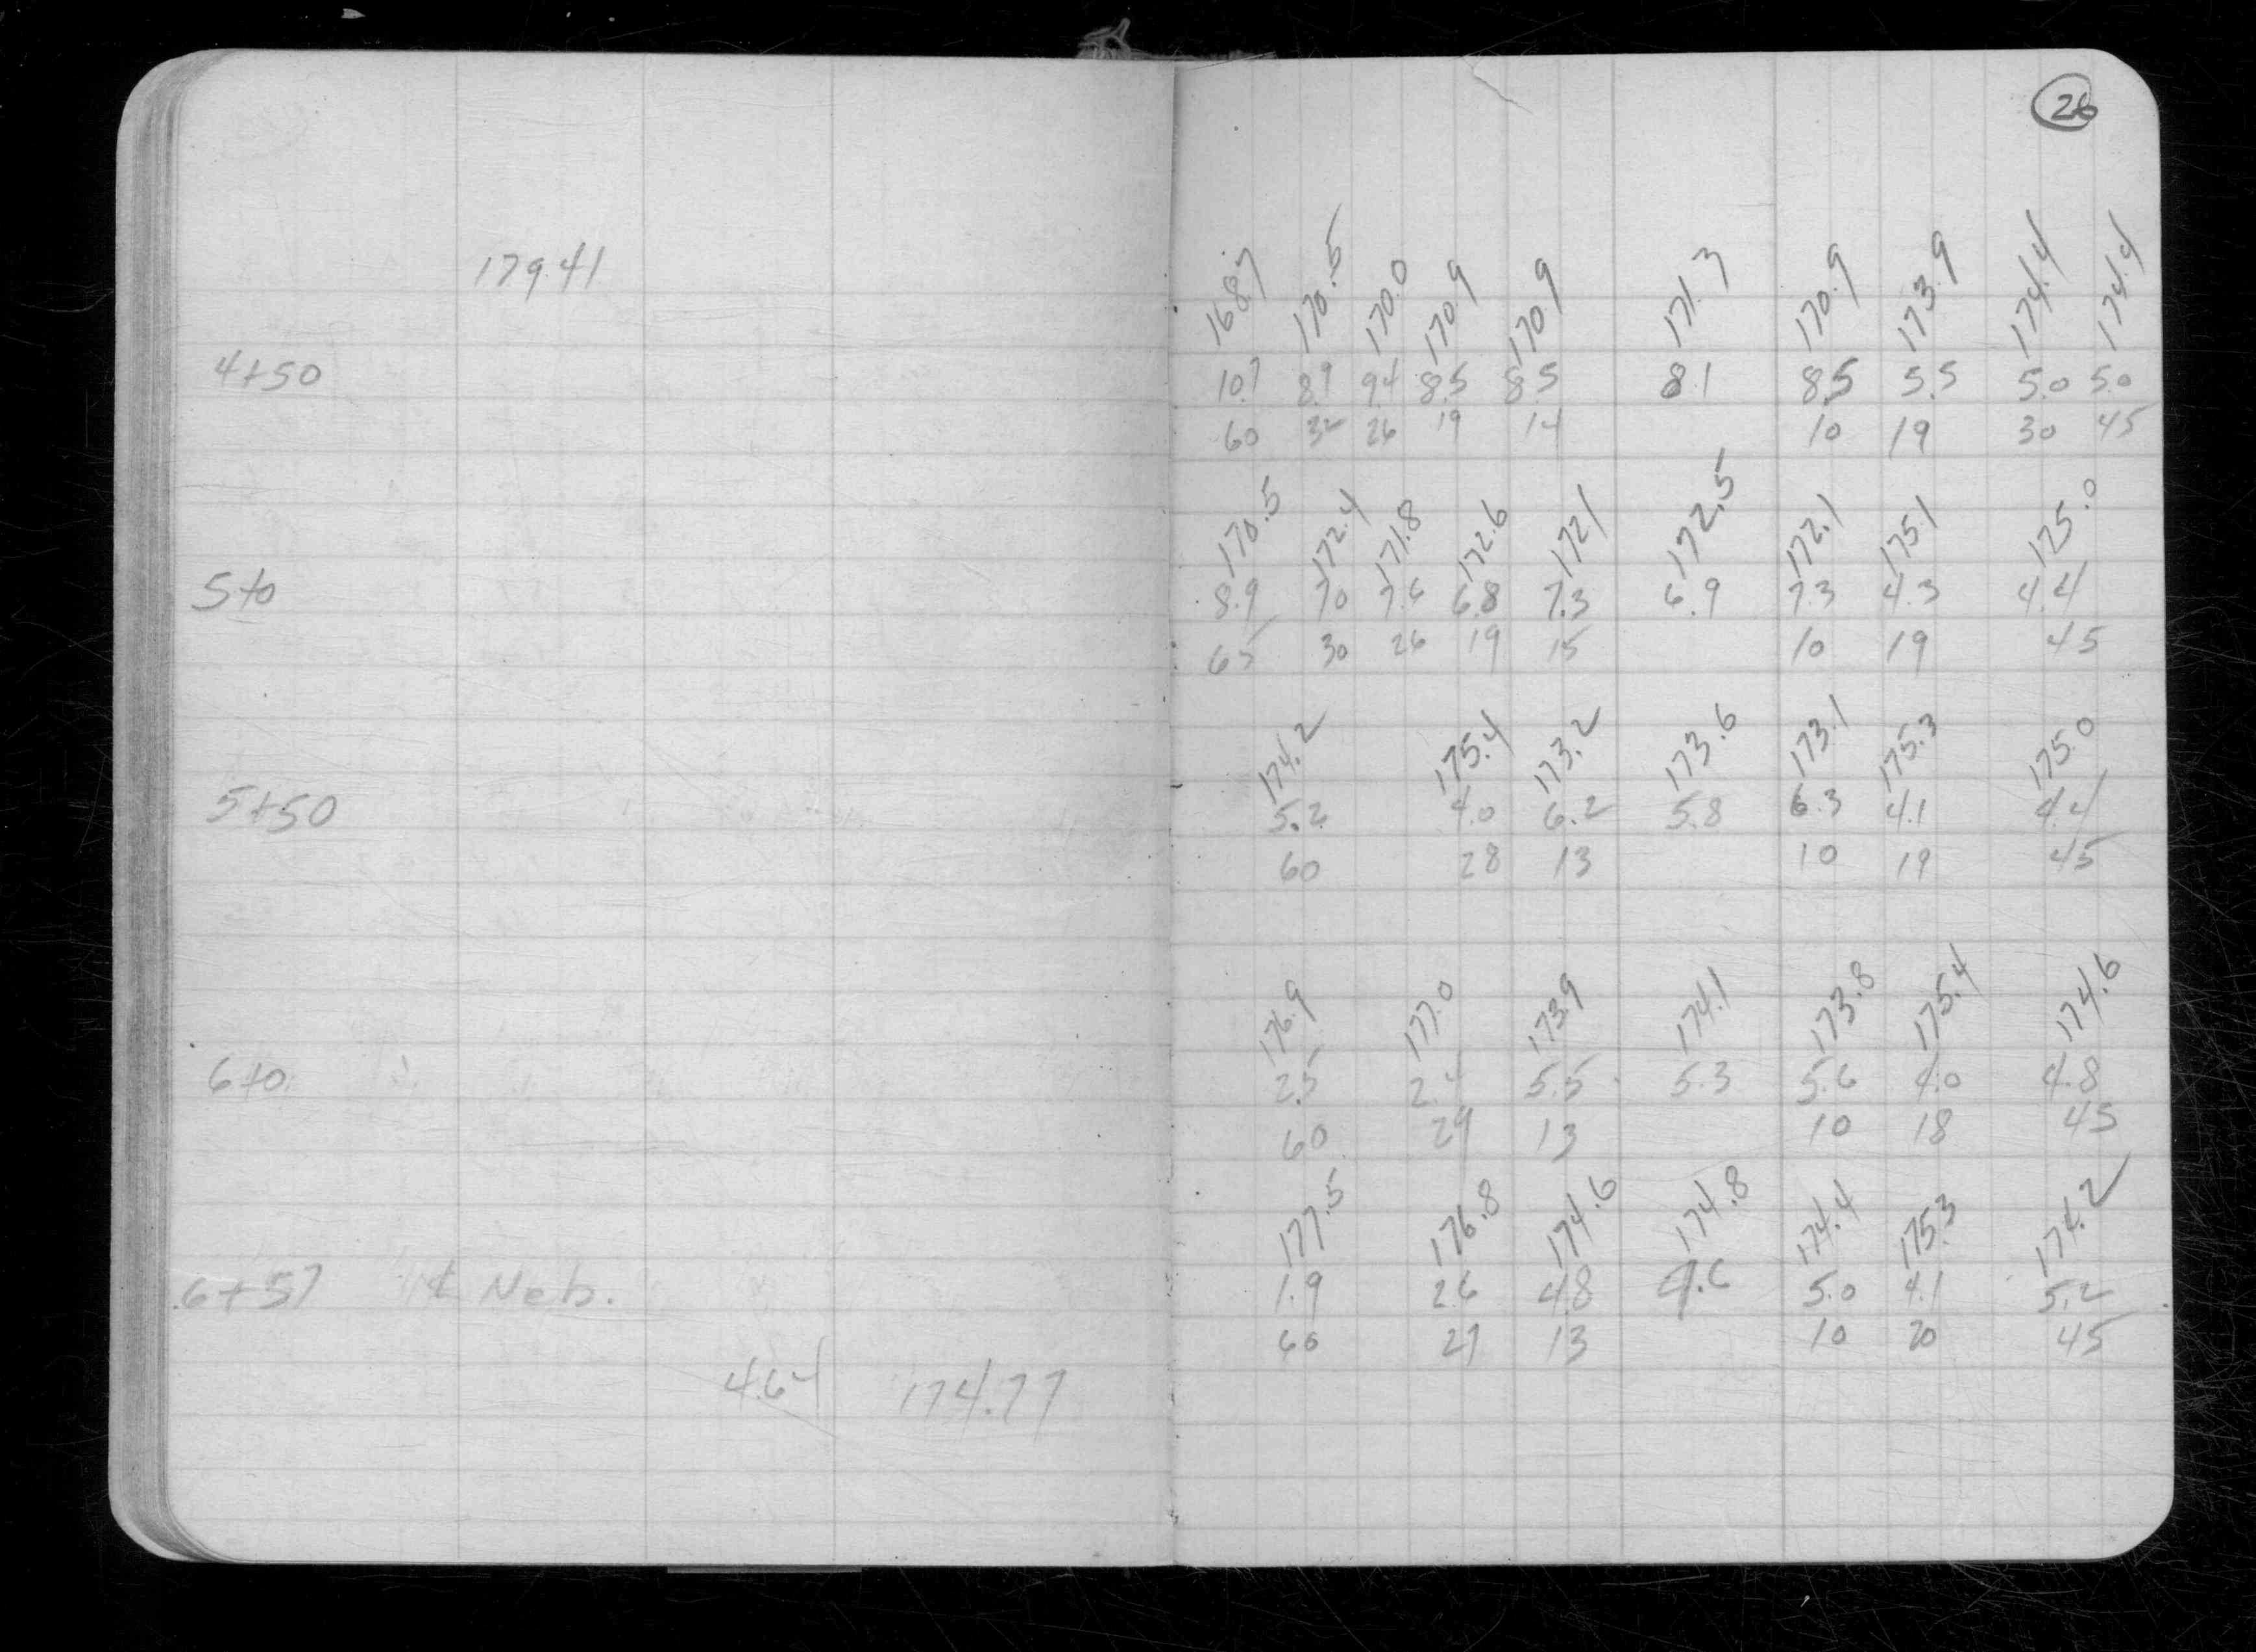 26
179.41
168.7 170.5 170.0 170.9 170.9 171.3 170.9 173.9 174.4 174.4
4+50 10.7 8.9 9.4 8.5 8.5 8.1 8.5 5.5 5.0 5.0
60 32 26 19 14 10 19 30 45
170.5 172.4 171.8 172.6 172.1 172.5 172.1 175.1 175.0
5+0 8.9 7.0 7.6 6.8 7.3 6.9 7.3 4.3 4.4
65 30 26 19 15 10 19 45
174.2 175.4 173.2 173.6 173.1 175.3 175.0
5+50 5.2 4.0 6.2 5.8 6.3 4.1 4.4
60 28 13 10 19 45
176.9 177.0 173.9 174.1 173.8 175.4 174.6
6+0 2.5 2.4 5.5 5.3 5.6 4.0 4.8
60 29 13 10 18 45
177.5 176.8 174.6 174.8 174.4 175.3 174.2
6+57 ℄ Neb. 1.9 2.6 4.8 4.6 5.0 4.1 5.2
60 27 13 10 20 45
4.64 174.77